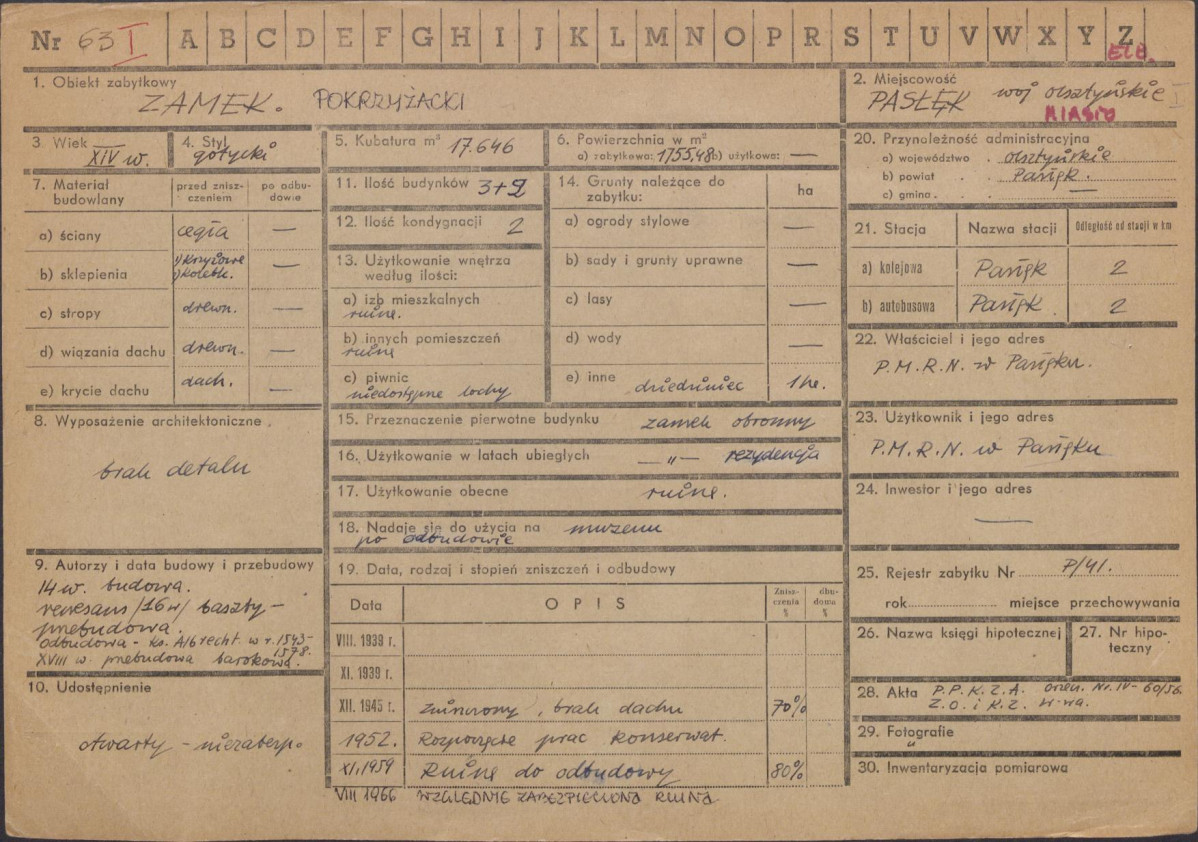 Nr 63 I A B C D E F G H I J K L M N O P R S T U V W X Y Z
ELB.
1. Obiekt zabytkowy
ZAMEK. POKRZYŻACKI
2. Miejscowość
PASŁĘK woj olsztyńskie I
MIASTO
3. Wiek
XIV w.
4. Styl
gotycki
5. Kubatura m³ 17.646
6. Powierzchnia w m²
a) zabytkowa: 1755,48 b) użytkowa: —
7. Materiał budowlany
przed zniszczeniem
po odbudowie
a) ściany cegła —
b) sklepienia 1) krzyżowe —
2) kolebk.
c) stropy drewn. —
d) wiązania dachu drewn. —
e) krycie dachu dach. —
8. Wyposażenie architektoniczne
brak detalu
9. Autorzy i data budowy i przebudowy
14 w. budowa.
renesans /16 w/ baszty –
przebudowa.
odbudowa - Ks. Albrecht w r. 1543–
1578.
XVIII w. przebudowa barokowa.
10. Udostępnienie
otwarty – niezabezp.
11. Ilość budynków 3+2
12. Ilość kondygnacji 2
13. Użytkowanie wnętrza
według ilości:
a) izb mieszkalnych
ruina.
b) innych pomieszczeń
ruina
c) piwnic
niedostępne lochy
14. Grunty należące do
zabytku:
ha
a) ogrody stylowe —
b) sady i grunty uprawne —
c) lasy —
d) wody —
e) inne dziedziniec 1 ha.
15. Przeznaczenie pierwotne budynku zamek obronny
16. Użytkowanie w latach ubiegłych — „ — rezydencja
17. Użytkowanie obecne ruina.
18. Nadaje się do użycia na muzeum
po odbudowie
19. Data, rodzaj i stopień zniszczeń i odbudowy
Data OPIS Zniszczenia % dbudowa %
VIII. 1939 r.
XI. 1939 r.
XII. 1945 r. zniszczony, brak dachu 70%
1952. Rozpoczęcie prac konserwat.
XI.1959 Ruina do odbudowy 80%
VIII 1966 WZGLĘDNIE ZABEZPIECZONA RUINA
20. Przynależność administracyjna
a) województwo olsztyńskie
b) powiat Pasłęk.
c) gmina —
21. Stacja Nazwa stacji Odległość od stacji w km
a) kolejowa Pasłęk 2
b) autobusowa Pasłęk. 2
22. Właściciel i jego adres
P.M.R.N. w Pasłęku.
23. Użytkownik i jego adres
P.M.R.N. w Pasłęku
24. Inwestor i jego adres
—
25. Rejestr zabytku Nr P/41.
rok miejsce przechowywania
26. Nazwa księgi hipotecznej
27. Nr hipoteczny
28. Akta P.P.K.Z.A. orzecz. Nr. IV- 60/56.
Z.O. i K.Z. W-wa.
29. Fotografie
„
30. Inwentaryzacja pomiarowa